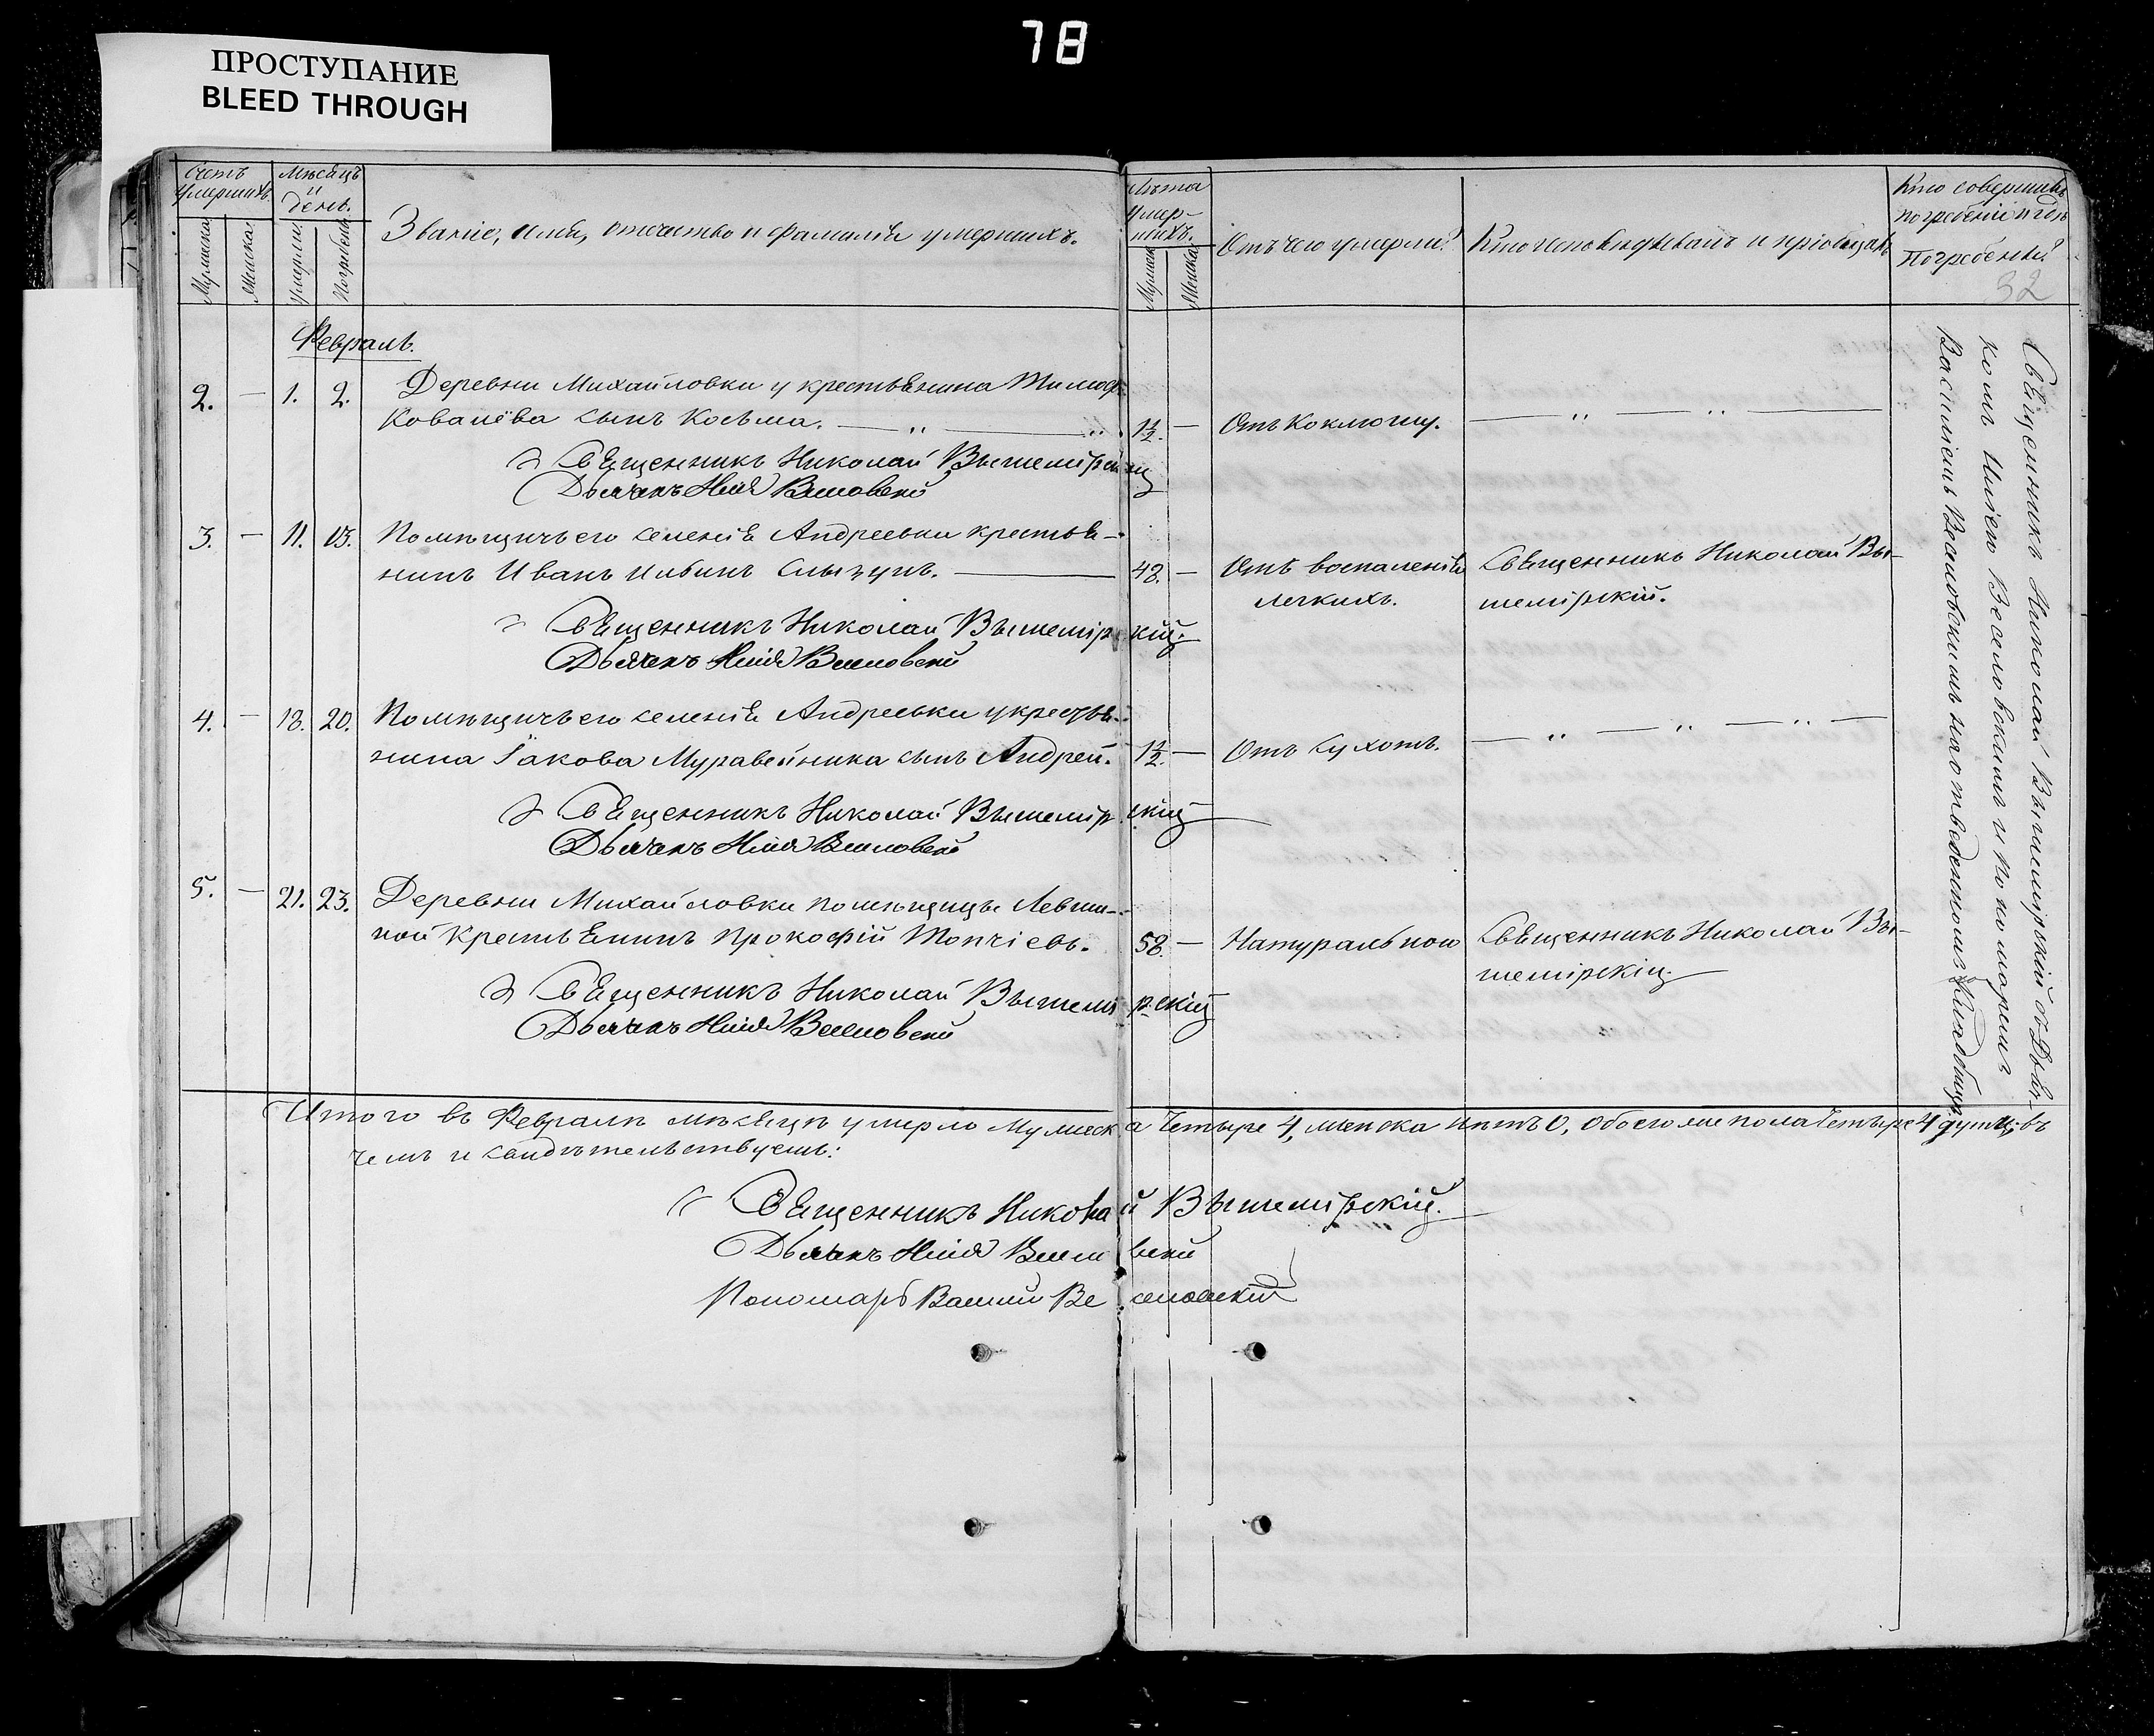 78
ПРОСТУПАНИЕ
BLEED THROUGH
Счетъ умершихъ.
Мужеска
Женска
Мѣсяцъ и день.
Умерли
Погребены
Званіе, имя, отчество и фамилія умершихъ.
Лѣта умер-
шихъ.
Мужеск.
Женска
Отъ чего умерли?
Кто исповѣдывалъ и пріобщалъ
Кто совершалъ
погребеніе и гдѣ
Погребены
32
Февраль.
2. — 1. 2. Деревни Михайловки у крестьянина Тимоф.
Ковалёва сынъ Косьма. 1½. — Отъ коклюшу.
Священникъ Николай Вышемірскій
Дьячекъ Илія Веселовскій
3. — 11. 13. Помѣщичьего селенія Андреевки крестья-
нинъ Иванъ Ильинъ 48. — Отъ воспаленія Священникъ Николай Вы-
легкихъ. шемірскій.
Священникъ Николай Вышемірскій.
Дьячекъ Илія Веселовскій
4. — 18. 20. Помѣщичьего селенія Андреевки у крестья-
нина Іакова Муравейника сынъ Андрей. 1½. — Отъ сухотъ.
Священникъ Николай Вышемірскій
Дьячекъ Илія Веселовскій
5. — 21. 23. Деревни Михайловки помѣщицы Левши-
ной крестьянинъ Прокофій Топчіевъ. 58. — Натуральною Священникъ Николай Вы-
шемірскій.
Священникъ Николай Вышемірскій
Дьячекъ Илія Веселовскій
Священникъ Николай Вышемірскій съ Дьяч-
комъ Иліею Веселовскимъ и пономаремъ
Василіемъ Веселовскимъ на отведенномъ кладбищѣ.
Итого въ Февралѣ мѣсяцѣ умерло мужеска четыре 4, женска нѣтъ 0, обоего же пола четыре 4 душъ, въ
чемъ и свидѣтельствуемъ:
Священникъ Николай Вышемірскій.
Дьячекъ Илія Веселовскій
Пономарь Василій Веселовскій